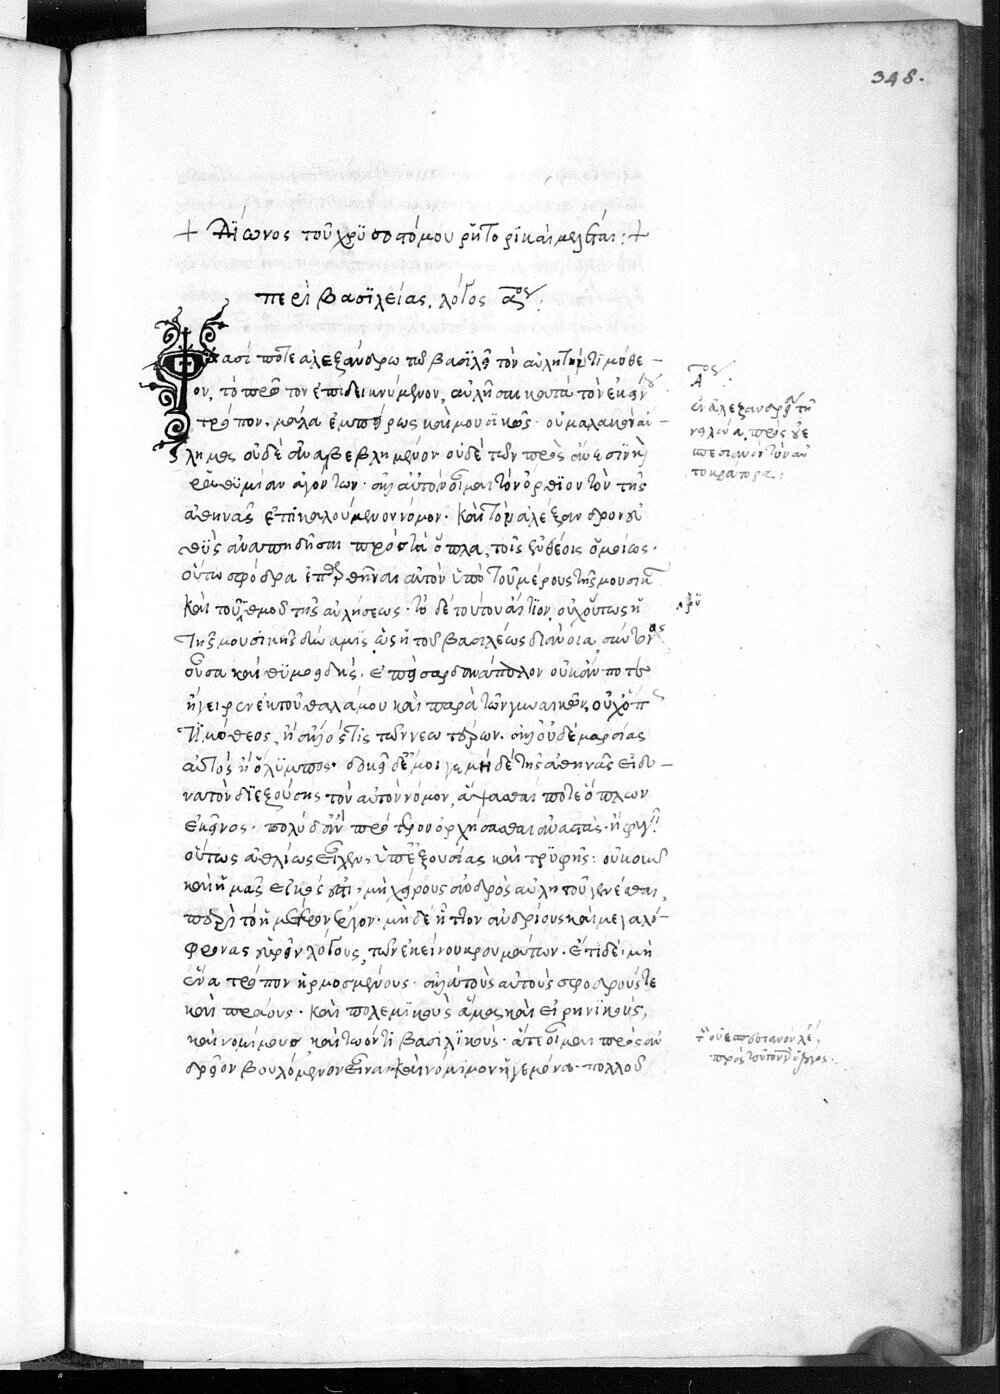 348.
+ Δίωνος τοῦ χρϋσοστόμου ῥητορικαὶ μελέται :+
περὶ βασϊλείας, λόγος αος :
Φασί ποτε ἀλεξάνδρω τῶ βασϊλεῖ τὸν αὐλητὴν τιμόθε-
ον, τὸ πρῶτον ἐπιδεικνύμενον, αὐλῆσαι κατὰ τὸν ἐκείνου
τρόπον, μάλα ἐμπείρως καὶ μουσικῶς· οὐ μαλακὸν αὔ-
λημα οὐδὲ ἀναβεβλημένον οὐδὲ τῶν πρὸς ἄνεσιν καὶ
ῥαθϋμίαν ἀγόντων· ἀλλ' αὐτὸν οἶμαι τὸν ὄρθιον τὸν τῆς
ἀθηνᾶς ἐπικαλούμενον νόμον· καὶ τὸν ἀλέξανδρον εὐ
θὺς ἀναπηδῆσαι πρὸς τὰ ὅπλα, τοῖς ἐνθέοις ὁμοίως·
οὕτω σφόδρα ἐπαρθῆναι αὐτὸν ὑπὸ τοῦ μέρους τῆς μουσικῆς
καὶ τοῦ ῥϋθμοῦ τῆς αὐλήσεως· τὸ δὲ τούτου αἴτιον, οὐχ οὕτως ἡ
τῆς μουσικῆς δύναμις, ὡς ἡ τοῦ βασιλέως διάνοια, σύντονος
οὖσα καὶ θϋμοειδής. ἐπεὶ σαρδανάπαλλον οὐκ ἄν ποτε
ἤγειρεν ἐκ τοῦ θαλάμου καὶ παρὰ τῶν γυναικῶν, οὐχ ὅπως
τιμόθεος, ἢ ἄλλός τις τῶν νεωτέρων· ἀλλ' οὐδὲ μαρσίας
αὐτὸς ἢ ὄλϋμπος· δοκεῖ δέ μοι γε, μηδὲ τῆς ἀθηνᾶς εἰ δυ-
νατὸν διεξιούσης τὸν αὐτὸν νόμον, ἅψασθαί ποτε ὅπλων
ἐκεῖνος· πολὺ δ' ἂν πρότερον ὀρχήσασθαι ἀναστὰς, ἢ φεύγειν·
οὕτως ἀθλίως εἶχεν, ὑπ' ἐξουσίας καὶ τρϋφῆς: οὐκοῦν
καὶ ἡμᾶς εἰκός ἐστι, μὴ χείρους ἀνδρὸς αὐλητοῦ γενέσθαι,
περὶ τὸ ἡμέτερον ἔργον· μηδὲ ἧττον ἀνδρίους καὶ μεγαλό-
φρονας εὑρεῖν λόγους, τῶν ἐκείνου κρουμάτων. ἔτι δὲ μὴ
ἕνα τρόπον ἡρμοσμένους· ἀλλὰ τοὺς αὐτοὺς σφοδρούς τε
καὶ πράους· καὶ πολεμικοὺς ἅμα καὶ εἰρηνϊκοὺς,
καὶ νομίμους, καὶ τῶ ὄντι βασϊλϊκούς· ἅτε οἶμαι πρὸς ἀν
δρεῖον βουλόμενον εἶναι καὶ νόμιμον ἡγεμόνα· πολλοῦ
Αος:
ἐν ἀλεξανδρείᾳ τῇ
πρὸς οὐε
σπεσιανὸν τὸν αὐ
τοκράτορα:
ῥϋ
πρὸς τοῦτον ὁ λόγος.